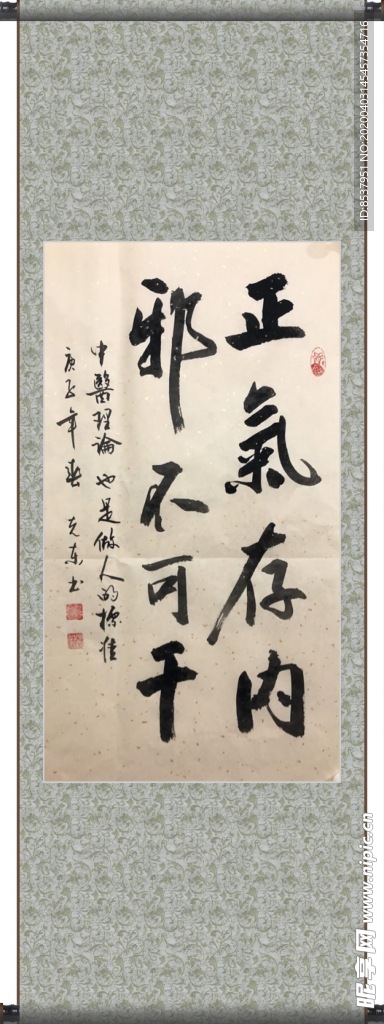 正氣存内
邪不可干
中醫理論 也是做人的標准
庚子年春 克東书
ID:8537951 NO:20200403145457354716
昵享网 www.nipic.cn